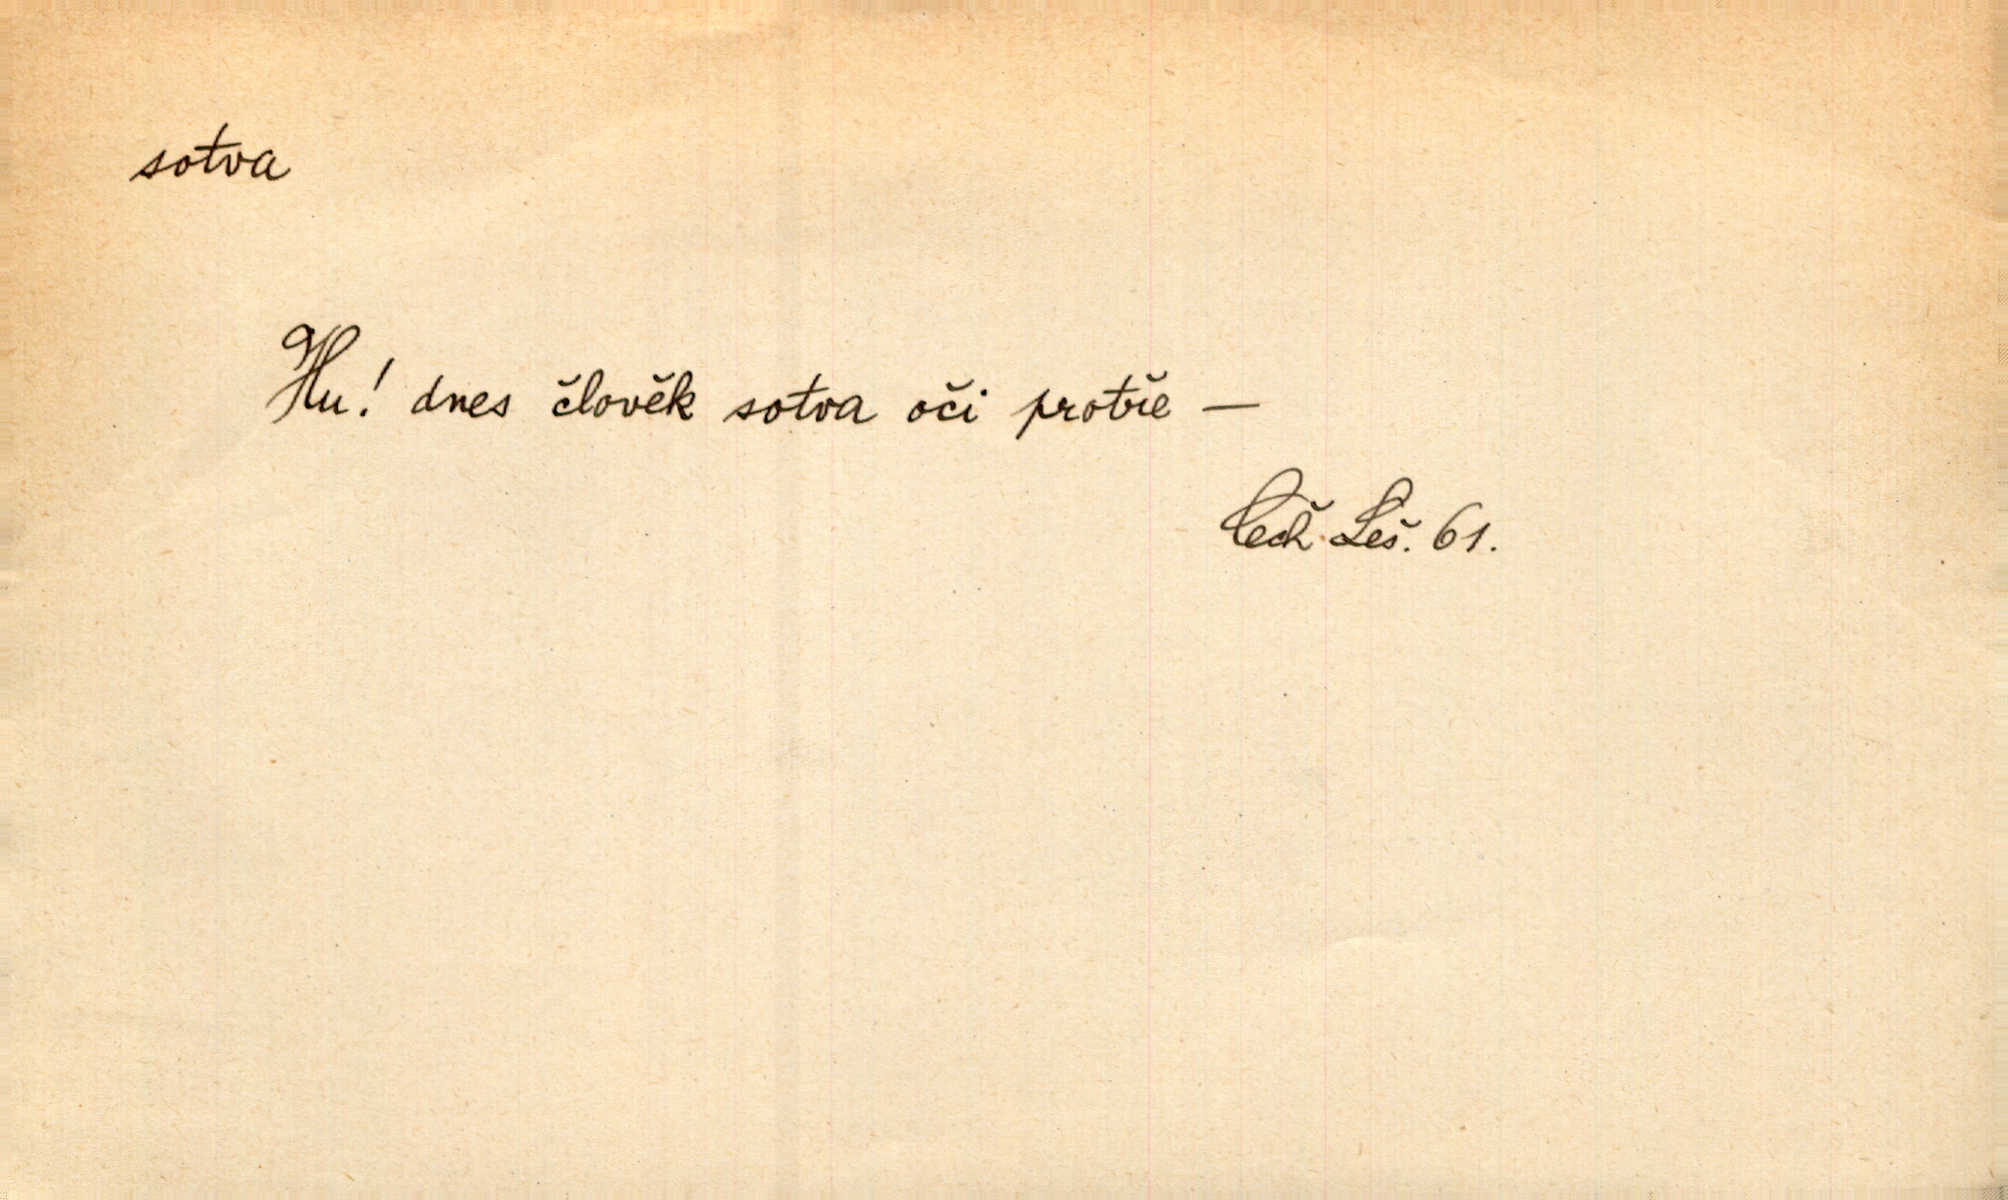 sotva
Hu! dnes člověk sotva oči protře —
Čech Leš. 61.